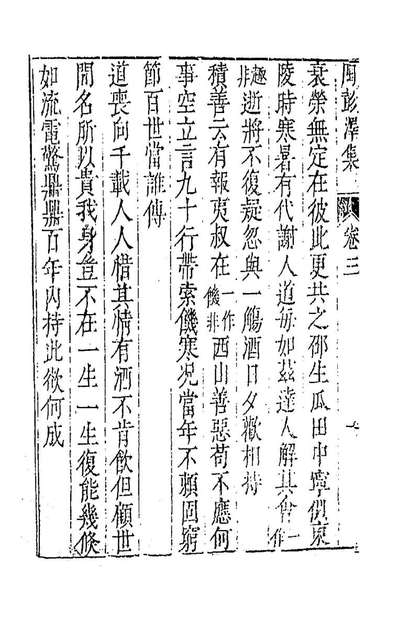 陶彭澤集 卷三 七
衰榮無定在彼此更共之邵生瓜田中寧似東
陵時寒暑有代謝人道每如茲達人解其會一作
趣非逝將不復疑忽與一觴酒日夕歡相持
積善云有報夷叔在一作饑非西山善惡苟不應何
事空立言九十行帶索饑寒況當年不賴固窮
節百世當誰傳
道喪向千載人人惜其情有酒不肯飲但顧世
間名所以貴我身豈不在一生一生復能幾倏
如流電驚鼎鼎百年內持此欲何成